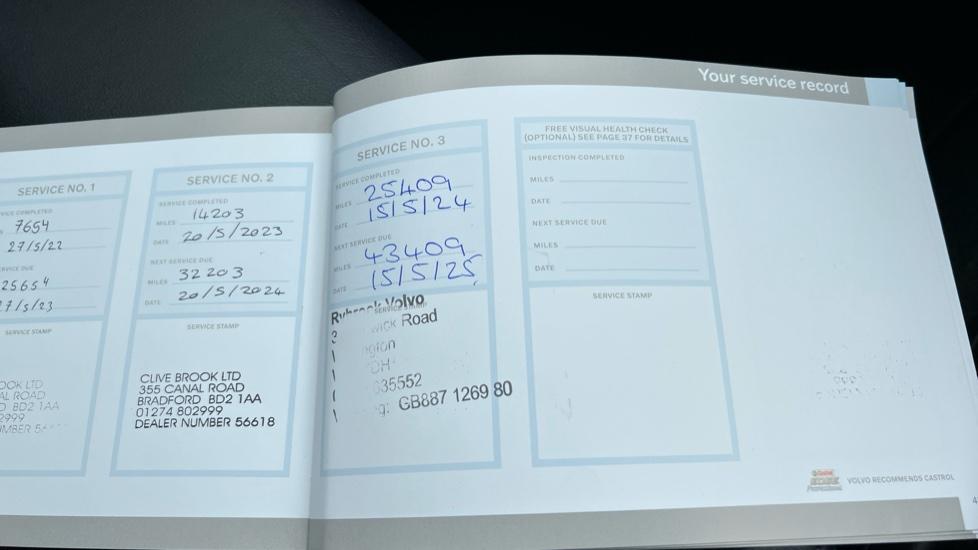 Your service record
SERVICE NO. 1
7654
27/5/22
25654
7/5/23
SERVICE STAMP
OOK LTD
AL ROAD
D BD2 1AA
2999
SERVICE NO. 2
SERVICE COMPLETED
MILES 14203
DATE 20/5/2023
NEXT SERVICE DUE
MILES 32203
DATE 20/5/2024
SERVICE STAMP
CLIVE BROOK LTD
355 CANAL ROAD
BRADFORD BD2 1AA
01274 802999
DEALER NUMBER 56618
SERVICE NO. 3
SERVICE COMPLETED
MILES 25409
DATE 15/5/24
NEXT SERVICE DUE
MILES 43409
DATE 15/5/25
SERVICE STAMP
Volvo
Road
35552
GB887 1269 80
FREE VISUAL HEALTH CHECK
(OPTIONAL) SEE PAGE 37 FOR DETAILS
INSPECTION COMPLETED
MILES
DATE
NEXT SERVICE DUE
MILES
DATE
SERVICE STAMP
Castrol
EDGE
Professional
VOLVO RECOMMENDS CASTROL